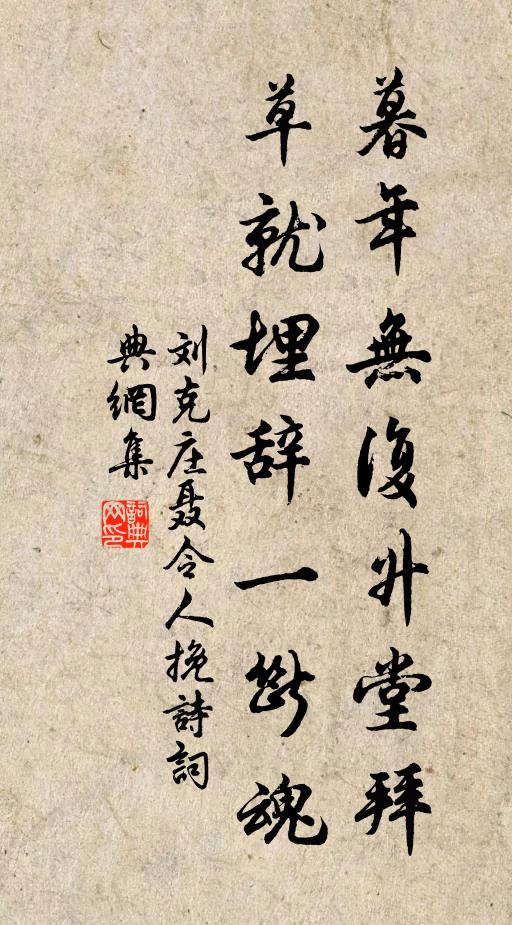 暮年無復升堂拜
草就埋辞一斷魂
刘克庄聂令人挽詩詞
典網集
詞典網印